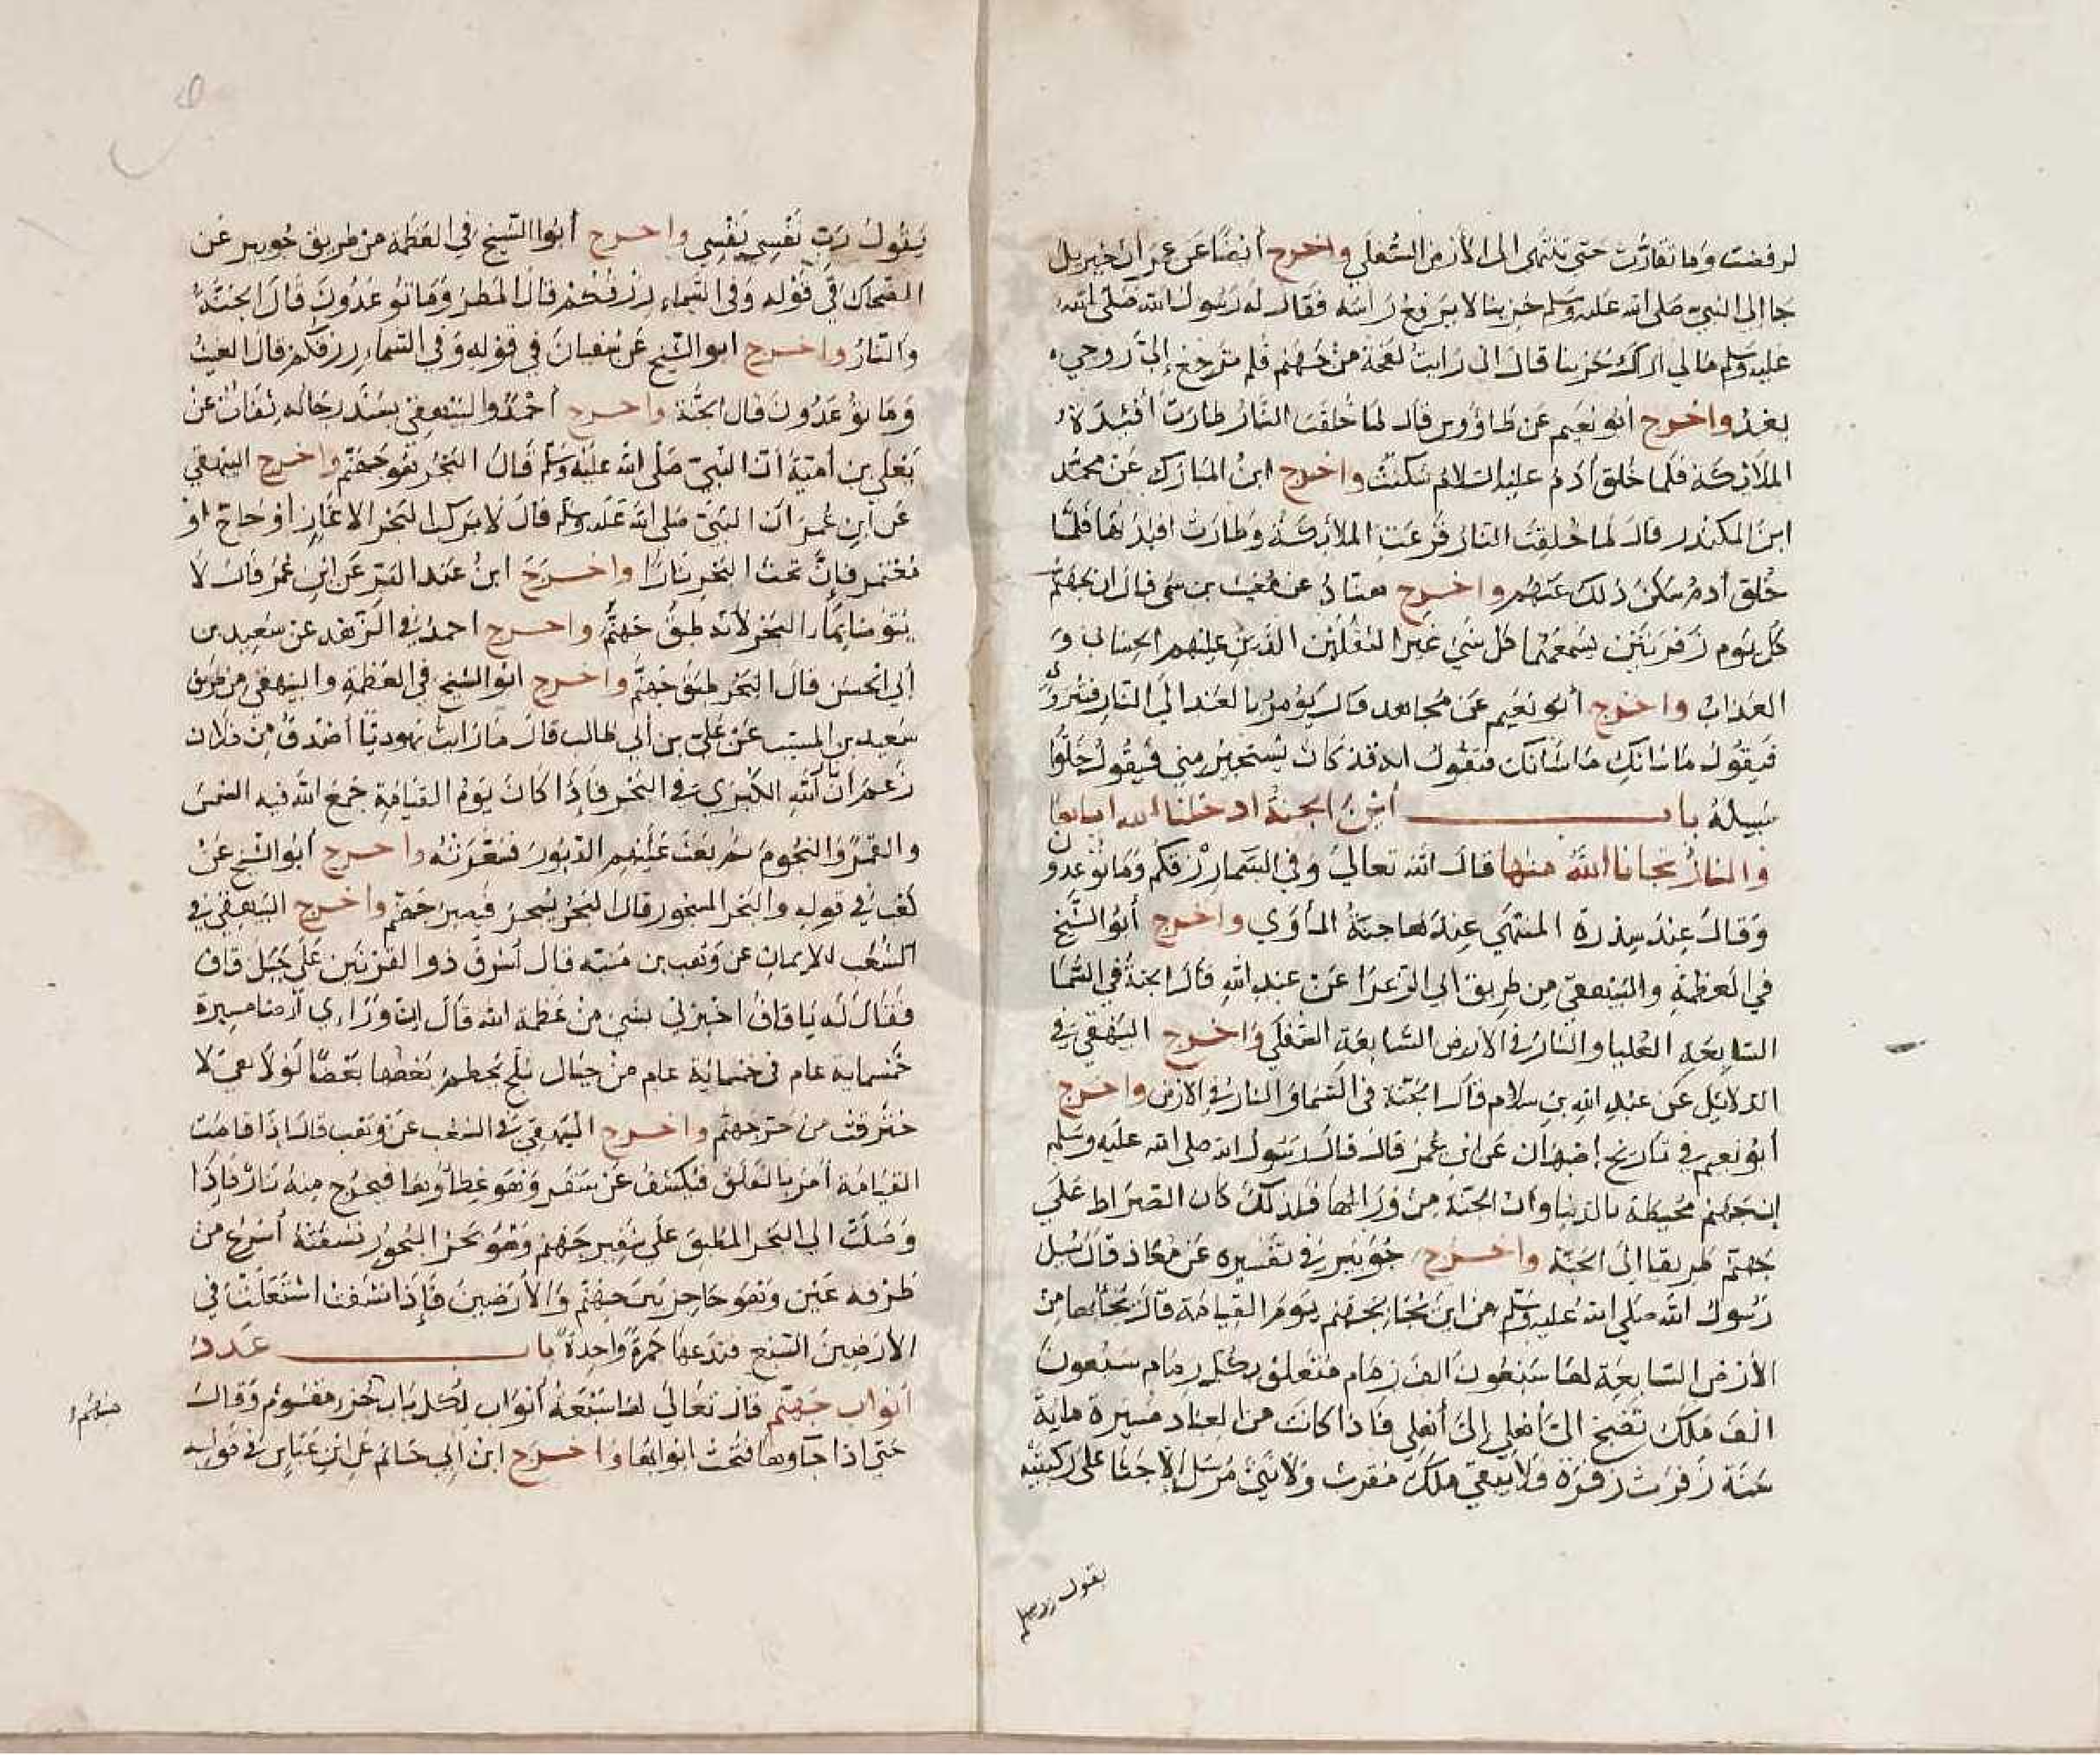 لرفضت وما تقارت حتى تنتهى الى الأرض السفلي واخرج أيضًا عن عمر ان جبريل
جا الى النبي صلى الله عليه وسلم حزينا لا يرفع راسه فقال له رسول الله صلى الله
عليه وسلم مالي اراك حزينا قال انى رايت لفحة من جهنم فلم ترجع إليّ روحي
بعد واخرج أبو نعيم عن طاووس قال لما خلقت النار طارت أفئدة
الملائكة فلما خلق أدم عليه السلام سكنت واخرج ابن المبارك عن محمد
ابن المكندر قال لما خلقت النار فزعت الملائكة وطارت افيدتها فلما
خلق أدم سكن ذلك عنهم واخرج هناد عن مغيث بن سمى قال ان لجهنم
كل يوم زفرتين يسمعهما كل شي غير الثقلين الذين عليهم الحساب و
العذاب واخرج أبو نعيم عن مجاهد قال يؤمر بالعبد الي النار فتزو
فيقول ما شانك ما شانك فتقول انه قد كان يستجير مني فيقول خلوا
سبيله باب أين الجنة ادخلنا الله اياها
والنار نجانا الله منها قال الله تعالي وفي السما رزقكم وما توعدون
وقال عند سدرة المنتهي عندها جنة المأوي واخرج أبو الشيخ
في العظمة والبيهقي من طريق ابي الزعرا عن عبد الله قال الجنة في السما
السابعة العليا والنار في الارض السابعة السفلي واخرج البيهقي في
الدلايل عن عبد الله بن سلام قال الجنة فى السما والنار في الارض واخرج
أبو نعيم في تاريخ اصبهان عن ابن عمر قال قال رسول الله صلى الله عليه وسلم
ان جهنم محيطة بالدنيا وان الجنة من ورائها فلذلك كان الصراط علي
جهنم طريقا الى الجنة واخرج جويبر في تفسيره عن معاذ قال سُئل
رسول الله صلى الله عليه وسلم من اين يجا بجهنم يوم القيامة قال يجا بها من
الأرض السابعة لها سبعون الف زمام متعلق بكل زمام سبعون
الف ملك تصيح اليّ أهلي اليّ أهلي فاذا كانت من العباد مسيرة ماية
سنة زفرت زفرة فلا يبقي ملك مقرب ولا نبيّ مرسل إلا جثا على ركبتيه
يقول رب
يقول رب نفسي نفسي واخرج أبو الشيخ في العظمة من طريق جويبر عن
الضحاك في قوله وفي السماء رزقكم قال المطر وما توعدون قال الجنة
والنار واخرج ابو الشيخ عن سفيان في قوله وفي السماء رزقكم قال الغيث
وما توعدون قال الجنة واخرج أحمد والبيهقي بسند رجاله ثقات عن
يعلى بن أمية ان النبي صلى الله عليه وسلم قال البحر هو جهنم واخرج البيهقي
عن ابن عمر ان النبي صلى الله عليه وسلم قال لا يركب البحر الا غاز أو حاج او
معتمر فإن تحت البحر نارا واخرج ابن عبد البر عن ابن عمر قال لا
يتوضا بماء البحر لانه طبق جهنم واخرج احمد في الزهد عن سعيد بن
أبي الحسن قال البحر طبق جهنم واخرج ابو الشيخ في العظمة والبيهقي من طريق
سعيد بن المسيب عن علي بن أبي طالب قال ما رايت يهوديًا أصدق من فلان
زعم ان نار الله الكبرى في البحر فإذا كان يوم القيامة جمع الله فيه الشمس
والقمر والنجوم ثم بعث عليهم الدبور فسعرته واخرج أبو الشيخ عن
كعب في قوله والبحر المسجور قال البحر يسجر فيصير جهنم واخرج البيهقي في
الشعب للايمان عن وهب بن منبه قال أشرف ذو القرنين على جبل قاف
فقال له يا قاف اخبرني بشي من عظمة الله قال ان وراءي أرضا مسيرة
خمسماية عام في خمسماية عام من جبال ثلج يحطم بعضها بعضًا لولا هي لا
حترقت من حر جهنم واخرج البيهقي في الشعب عن وهب قال إذا قامت
القيامة أمر بالفلق فيكشف عن سقر وهو غطاؤها فيخرج منه نار فإذا
وصلت الى البحر المطبق على شفير جهنم وهو بحر البحور نشفته أسرع من
طرفه عين وهو حاجز بين جهنم والأرضين فإذا نشفت اشتعلت في
الأرضين السبع فتدعها جمرة واحدة باب عدد
أبواب جهنم قال تعالي لها سبعة أبواب لكل باب جزء مقسوم وقال
حتى اذا جاؤها فتحت ابوابها واخرج ابن ابي حاتم عن ابن عباس في قوله
منهم